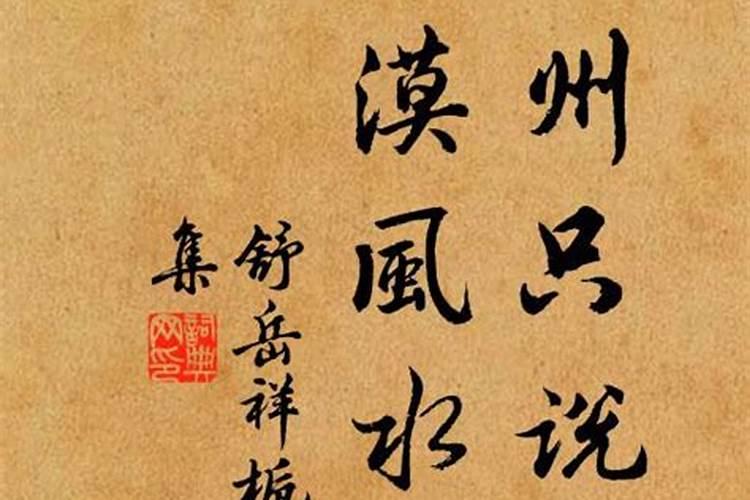 州只说
漠風水
舒岳祥
集
詞典网印